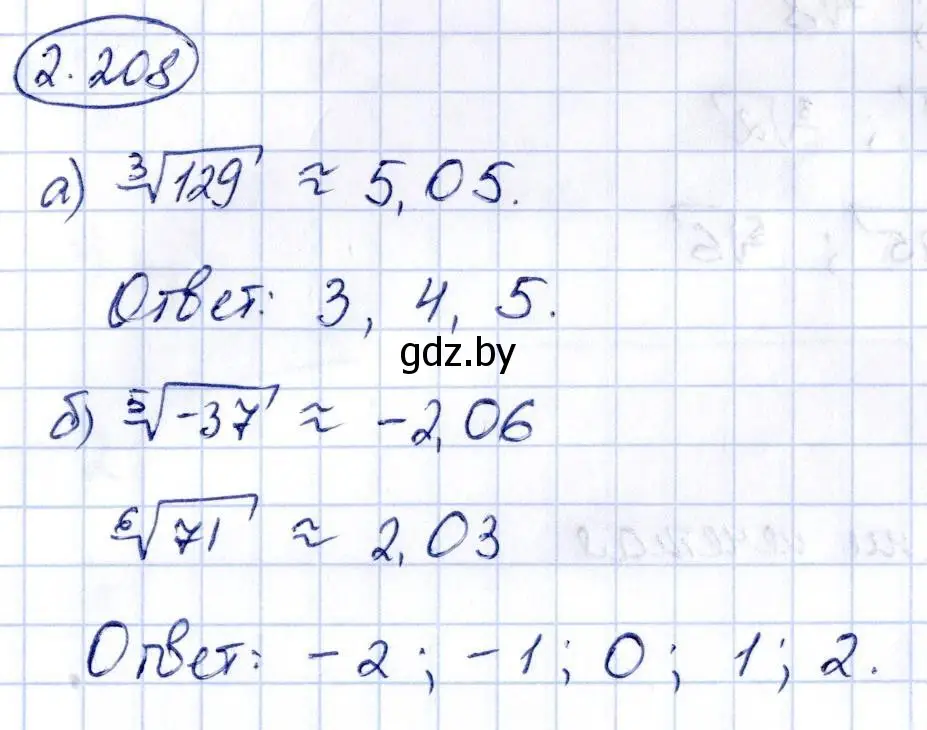 2.208
а) ∛129 ≈ 5,05.
Ответ: 3, 4, 5.
gdz.by
б) ⁵√-37 ≈ -2,06
⁶√71 ≈ 2,03
Ответ: -2; -1; 0; 1; 2.